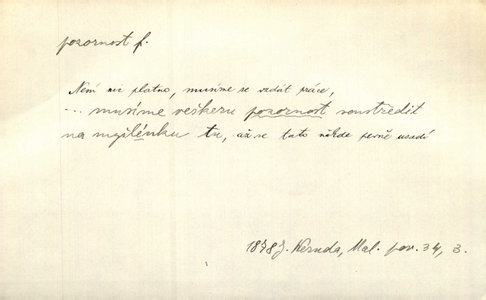 pozornost f.
Není nic platno, musíme se vzdát práce,
... musíme veškeru pozornost soustředit
na myšlénku tu, až se tato někde pevně usadí
1878 J. Neruda, Mal. pov. 34, 3.